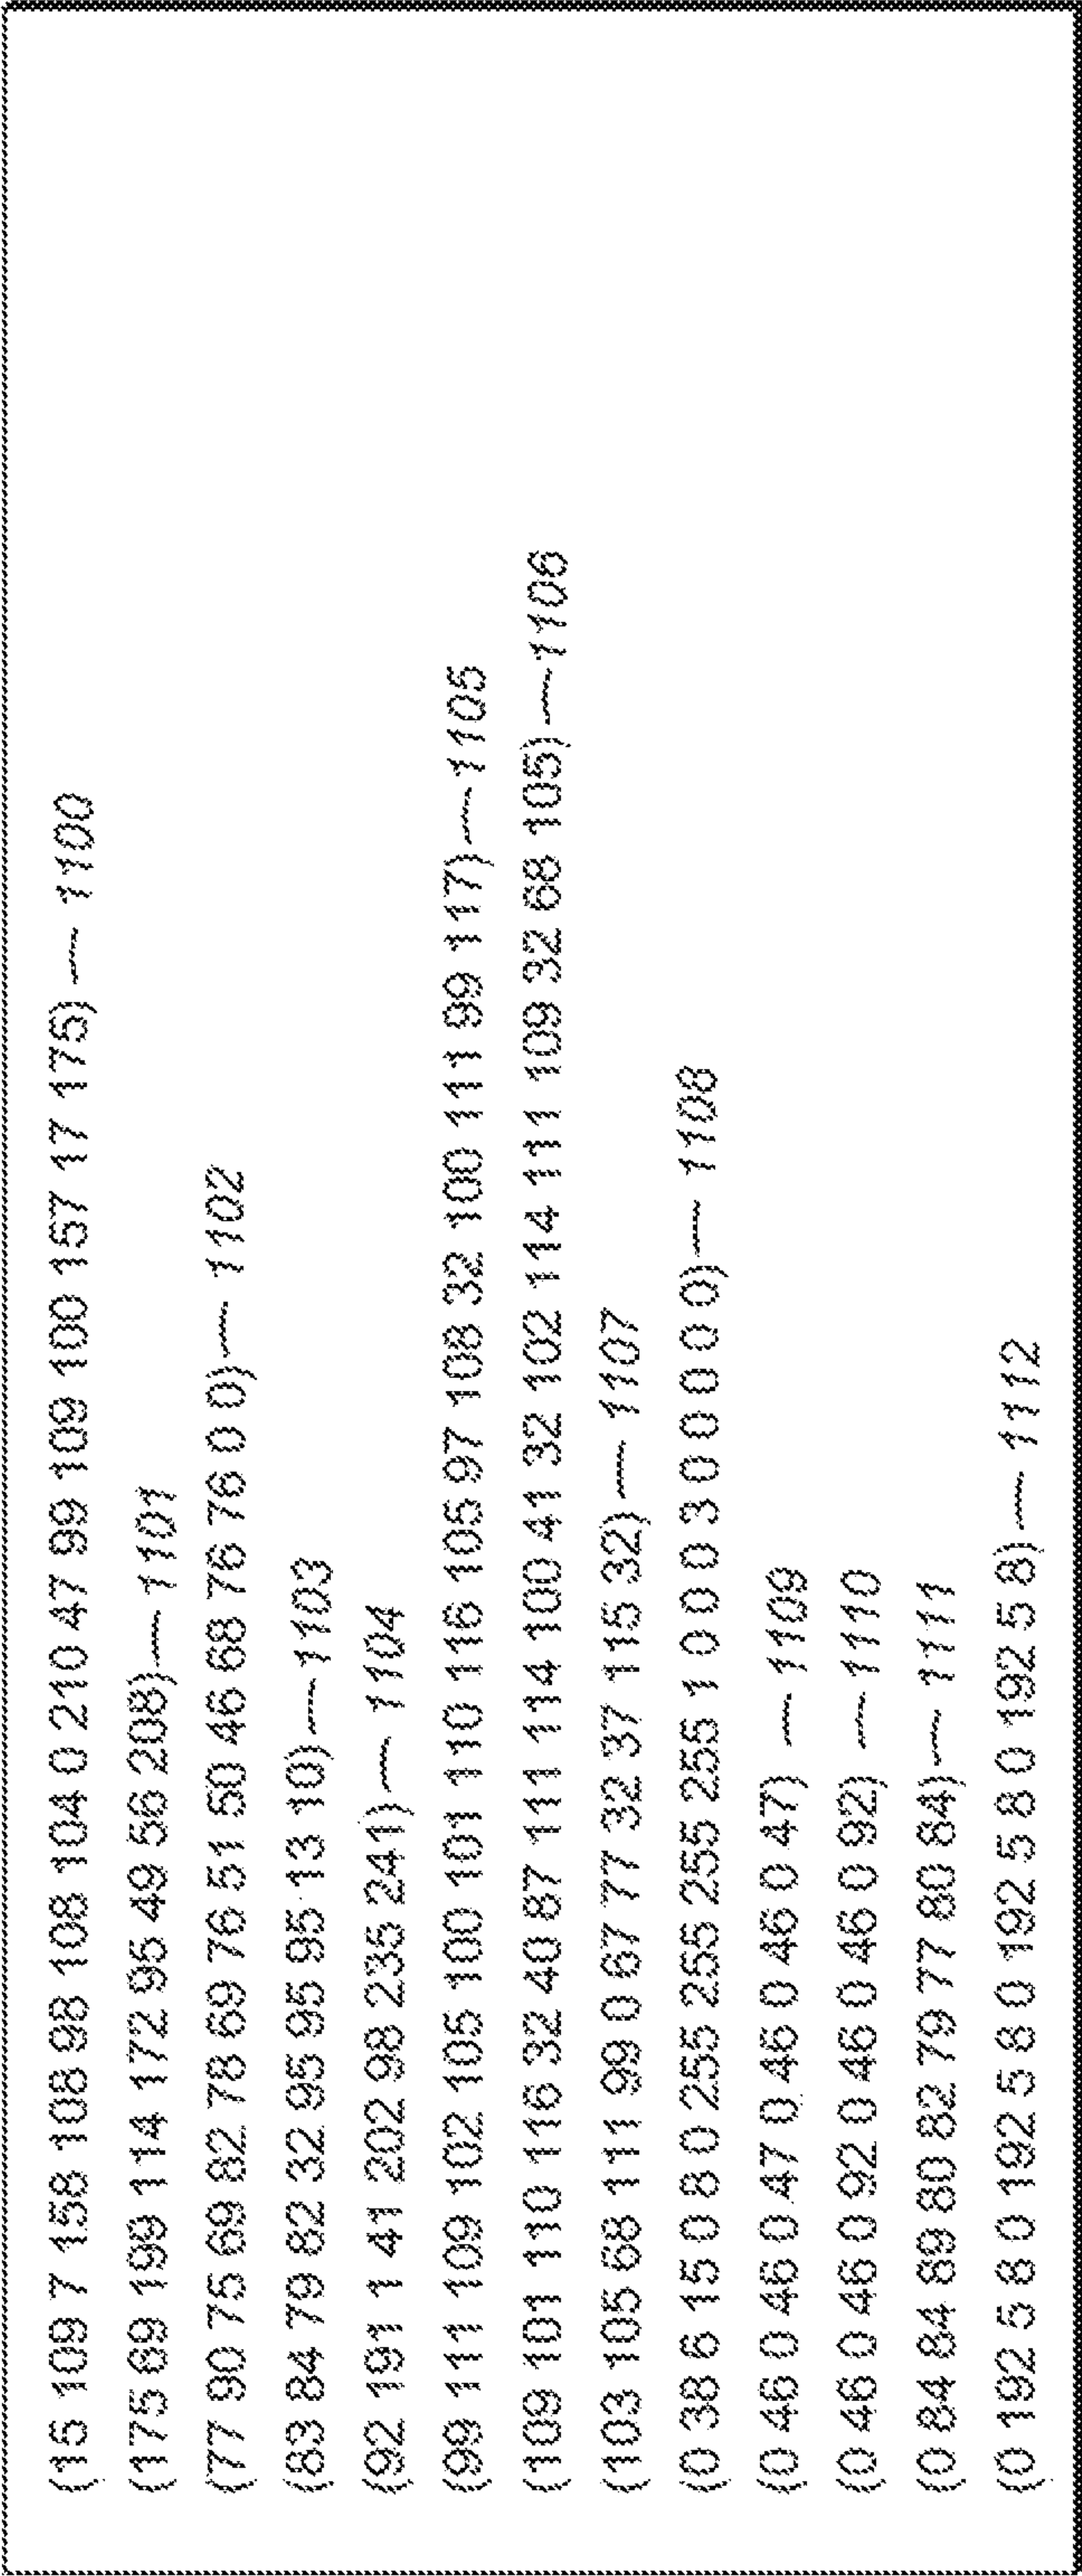 (15 109 7 158 108 98 108 104 0 210 47 99 109 100 157 17 175) — 1100
(175 69 199 114 172 95 49 56 208) — 1101
(77 90 75 69 82 78 69 76 51 50 46 68 76 76 0 0) — 1102
(83 84 79 82 32 95 95 95 13 10) — 1103
(92 191 1 41 202 98 235 241) — 1104
(99 111 109 102 105 100 101 110 116 105 97 108 32 100 111 99 117) — 1105
(109 101 110 116 32 40 87 111 114 100 41 32 102 114 111 109 32 68 105) — 1106
(103 105 68 111 99 0 67 77 32 37 115 32) — 1107
(0 38 6 15 0 8 0 255 255 255 255 1 0 0 0 3 0 0 0 0 0) — 1108
(0 46 0 46 0 47 0 46 0 46 0 47) — 1109
(0 46 0 46 0 92 0 46 0 46 0 92) — 1110
(0 84 84 89 80 82 79 77 80 84) — 1111
(0 192 5 8 0 192 5 8 0 192 5 8 0 192 5 8) — 1112